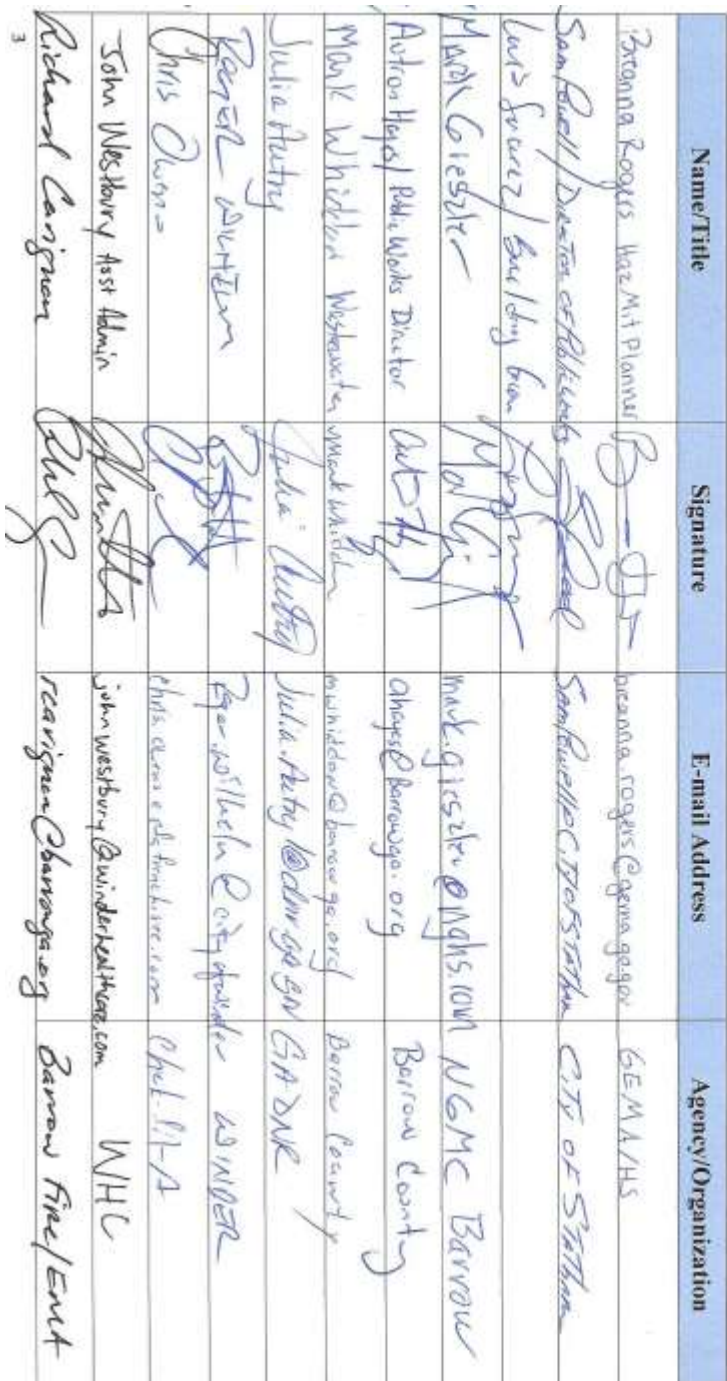 Name/Title Signature E-mail Address Agency/Organization
Breanna Rogers Haz Mit Planner breanna.rogers@gema.ga.gov GEMA/HS
Sam Powell / Director of CITY OF STATHAM
Luis Suarez / Building
Mark Gieszler mark.gieszler@nghs.com NGMC Barrow
Autron Hayes / Public Works Director ahayes@barrowga.org Barrow County
Mark Whiddon Wastewater Mark Whiddon mwhiddon@barrowga.org Barrow County
Julia Autry Julia Autry Julia.Autry1@dnr.ga.gov GADNR
Roger Wilhelm Roger.wilhelm@cityofwinder WINDER
Chris Owens Chick-fil-A
John Westbury Asst Admin john.westbury@winderhealthcare.com WHC
Richard Carignan rcarignan@barrowga.org Barrow Fire/EMA
3